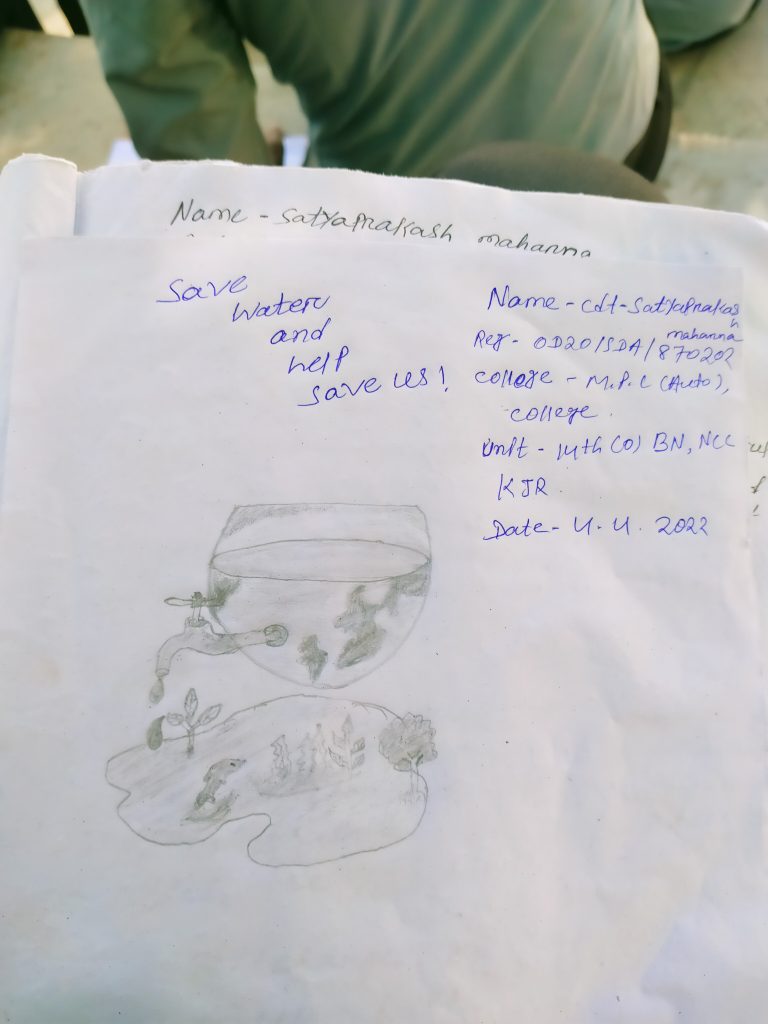 Name - Satyaprakash mahanna
Save
Water
and
help
save us!
Name - Cdt - Satyaprakash
mahanna
Reg - OD20/SDA/870202
College - M.P.C (Auto),
College.
Unit - 14th (O) BN, NCC
KJR.
Date - 4.4.2022